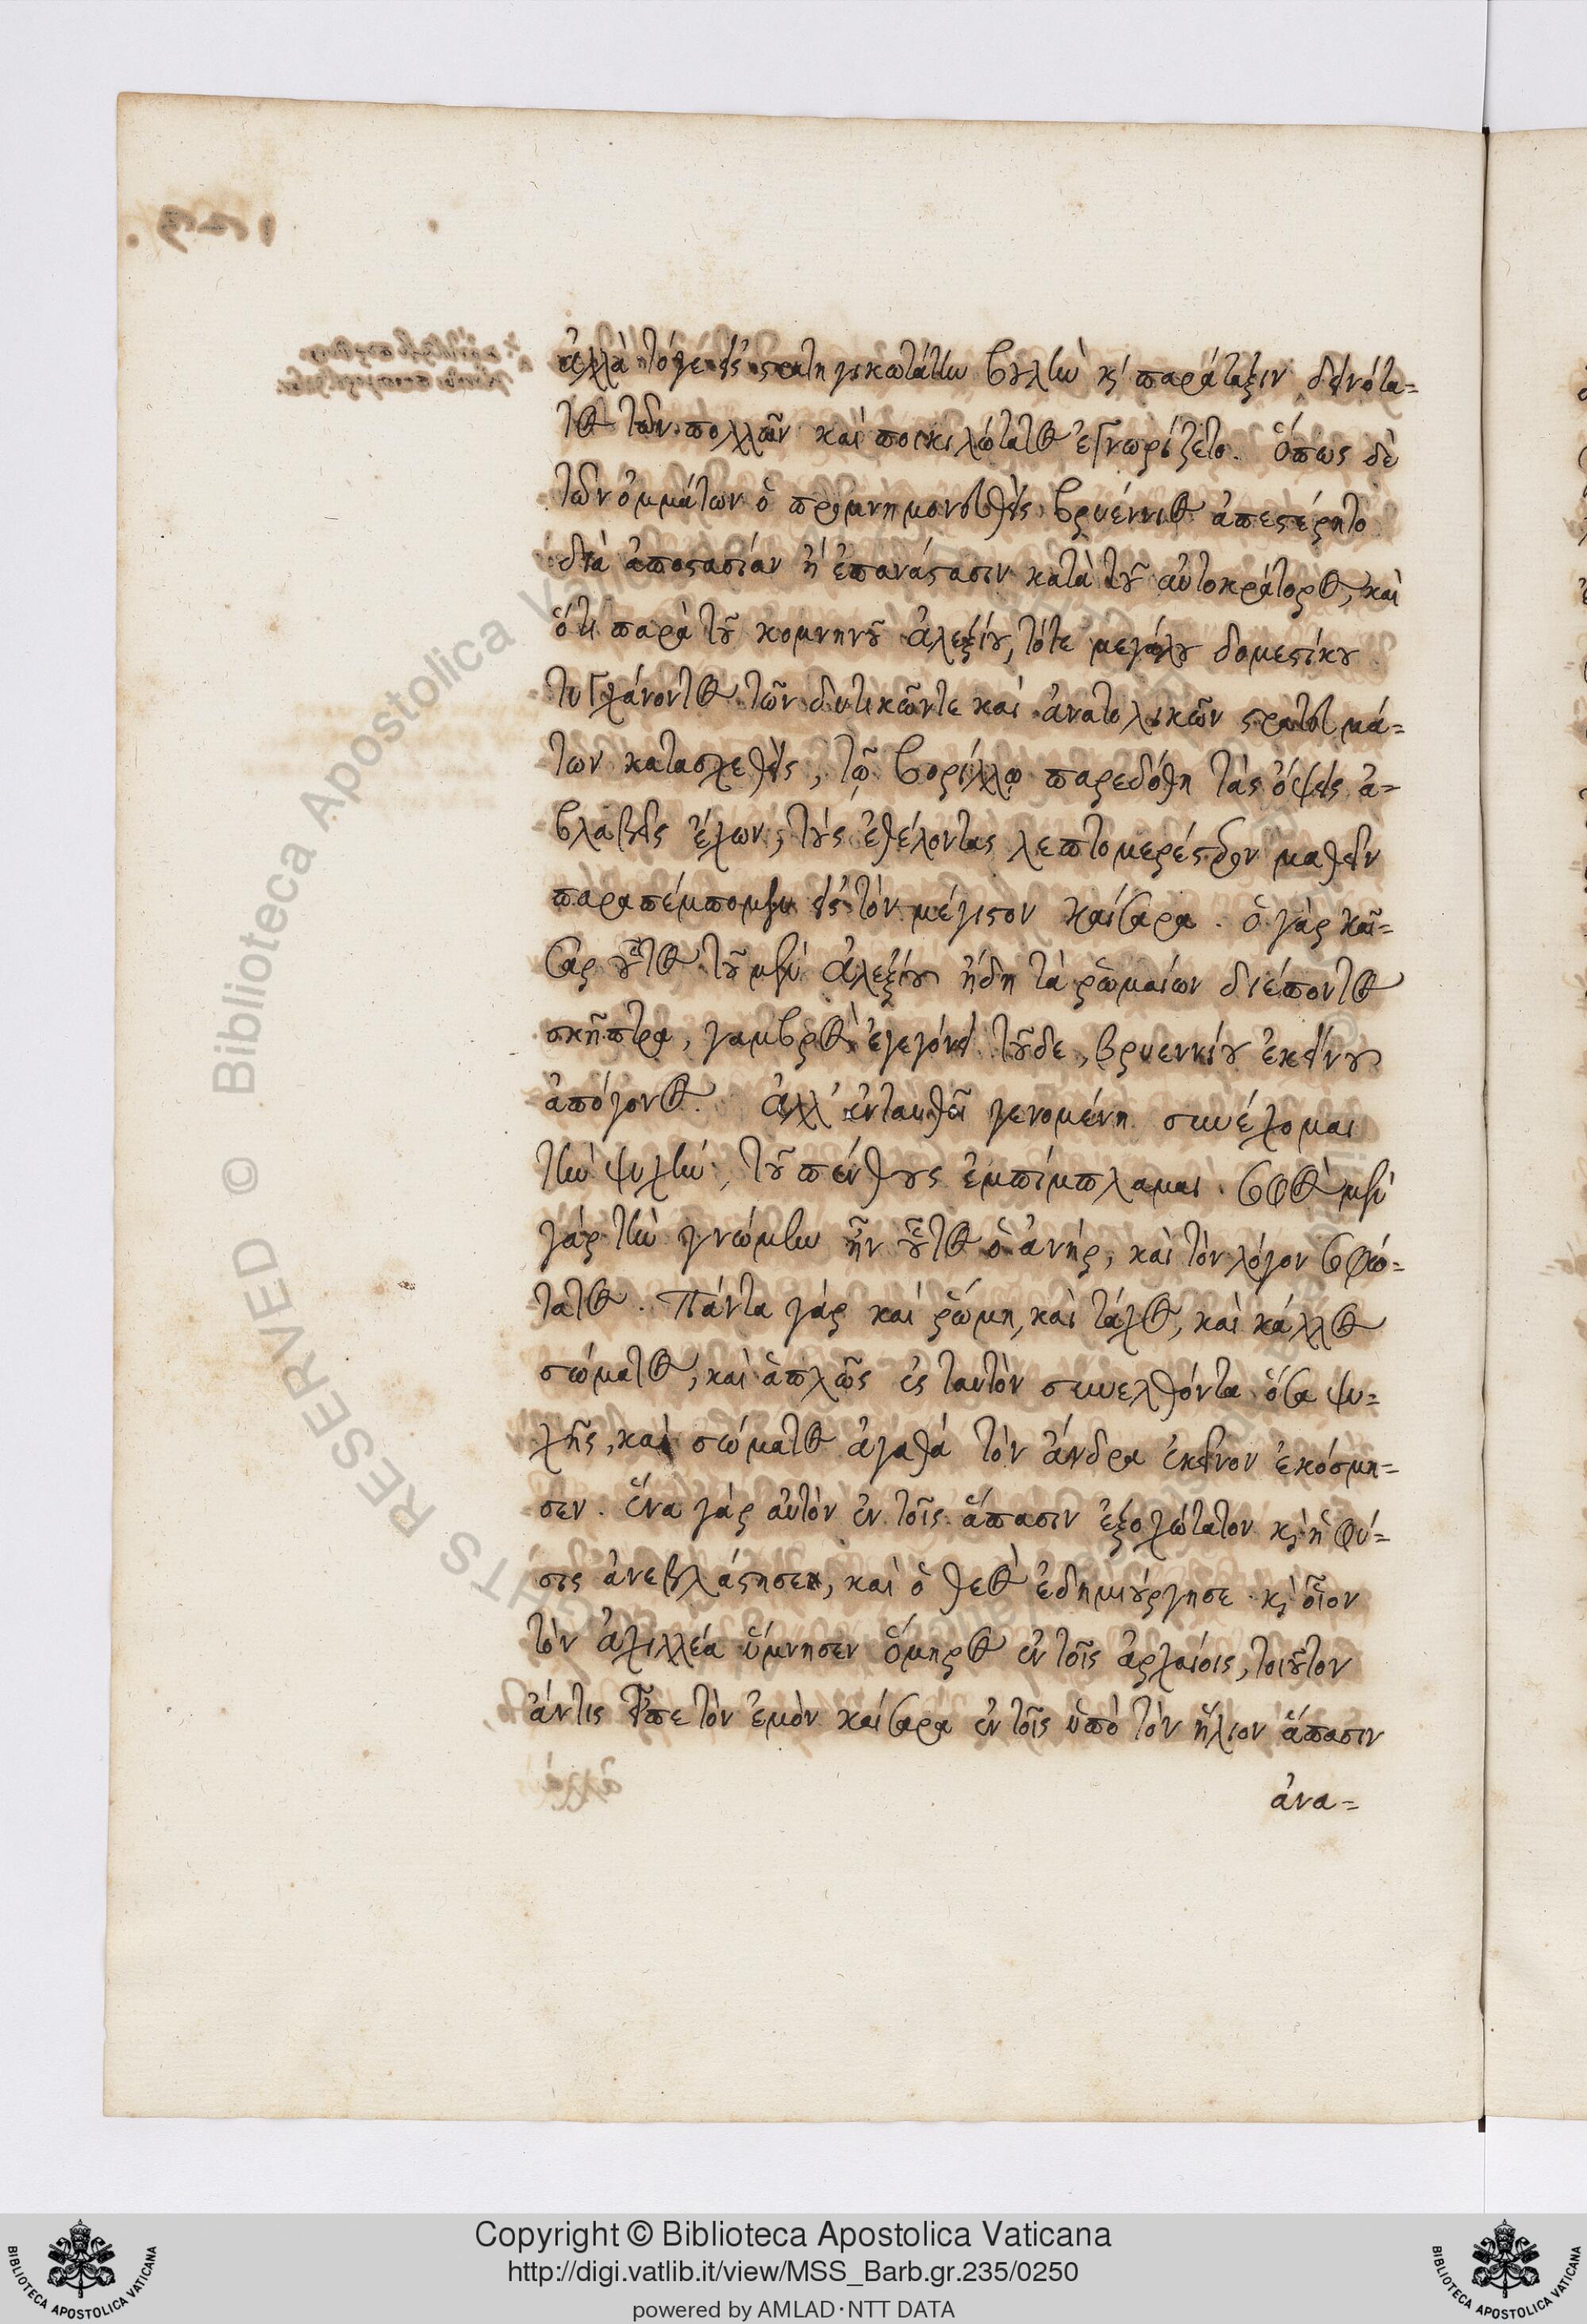 ἀλλὰ τόγε εἰς στρατηγικωτάτην βουλὴν καὶ παράταξιν δεινότα=
τος τῶν πολλῶν καὶ ποικιλώτατος ἐγνωρίζετο. Ὅπως δὲ
τῶν ὀμμάτων ὁ προμνημονευθεὶς βρυέννιος ἀπεστέρητο
διὰ ἀποστασίαν ἢ ἐπανάστασιν κατὰ τοῦ αὐτοκράτορος, καὶ
ὅτι παρὰ τοῦ κομνηνοῦ ἀλεξίου, τότε μεγάλου δομεστίκου
τυγχάνοντος τῶν δυτικῶντε καὶ ἀνατολικῶν στρατευμά=
των κατασχεθεὶς, τῷ βορίλλῳ παρεδόθη τὰς ὄψεις ἀ=
βλαβεῖς ἔχων, τοὺς ἐθέλοντας λεπτομερέστερον μαθεῖν
παραπέμπομεν εἰς τὸν μέγιστον καίσαρα. ὁ γὰρ καῖ=
σαρ οὗτος τοῦ μὲν ἀλεξίου ἤδη τὰ ῥωμαίων διέποντος
σκῆπτρα, γαμβρὸς ἐγεγόνει τοῦδε, βρυεννίου ἐκείνου
ἀπόγονος. ἀλλ' ἐνταυθεῖ γενομένη συνέχομαι
τὴν ψυχὴν, τοῦ πένθους ἐμπίμπλαμαι. σοφὸς μὲν
γὰρ τὴν γνώμην ἦν οὗτος ὁ ἀνὴρ, καὶ τὸν λόγον σοφώ=
τατος. Πάντα γὰρ καὶ ῥώμη, καὶ τάχος, καὶ κάλλος
σώματος, καὶ ἁπλῶς ἐς ταυτὸν συνελθόντα ὅσα ψυ=
χῆς, καὶ σώματος ἀγαθά τὸν ἄνδρα ἐκεῖνον ἐκόσμη=
σεν. ἕνα γὰρ αὐτὸν ἐν τοῖς ἅπασιν ἐξοχώτατον καὶ ἡ φύ=
σις ἀνεβλάστησεν, καὶ ὁ θεὸς ἐδημιούργησε καὶ οἷον
τὸν ἀχιλλέα ὕμνησεν ὅμηρος ἐν τοῖς ἀρχαίοις, τοιοῦτον
ἄντις εἶπε τὸν ἐμὸν καίσαρα ἐν τοῖς ὑπὸ τὸν ἥλιον ἅπασιν
ἀνα=
Copyright © Biblioteca Apostolica Vaticana
http://digi.vatlib.it/view/MSS_Barb.gr.235/0250
powered by AMLAD·NTT DATA
BIBLIOTECA APOSTOLICA VATICANA
BIBLIOTECA APOSTOLICA VATICANA